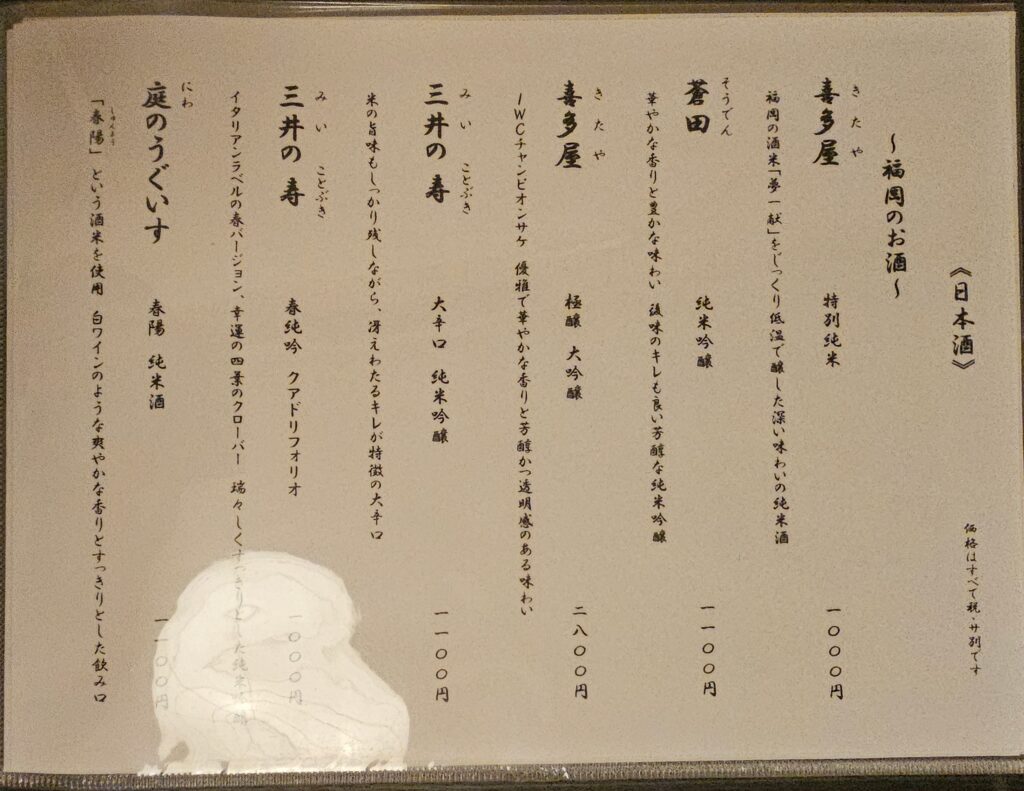 《日本酒》
価格はすべて税・サ別です
～福岡のお酒～
きたや
喜多屋 特別純米 一〇〇〇円
福岡の酒米「夢一献」をじっくり低温で醸した深い味わいの純米酒
そうでん
蒼田 純米吟醸 一一〇〇円
華やかな香りと豊かな味わい 後味のキレも良い芳醇な純米吟醸
きたや
喜多屋 極醸 大吟醸 二八〇〇円
IWCチャンピオンサケ 優雅で華やかな香りと芳醇かつ透明感のある味わい
みい ことぶき
三井の寿 大辛口 純米吟醸 一一〇〇円
米の旨味もしっかり残しながら、冴えわたるキレが特徴の大辛口
みい ことぶき
三井の寿 春純吟 クアドリフォリオ 一〇〇〇円
イタリアンラベルの春バージョン、幸運の四葉のクローバー 瑞々しくすっきりとした純米吟醸
にわ
庭のうぐいす 春陽 純米酒 一一〇〇円
しゅんよう
「春陽」という酒米を使用 白ワインのような爽やかな香りとすっきりとした飲み口